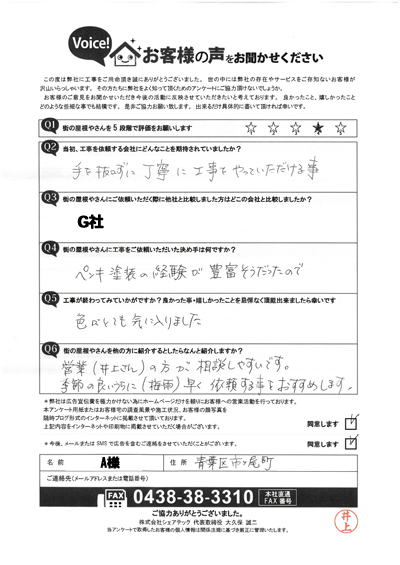 Voice!
お客様の声をお聞かせください
この度は弊社に工事をご用命頂き誠にありがとうございました。世の中には弊社の存在やサービスをご存知ないお客様が
沢山いらっしゃいます。その方たちに弊社をよく知って頂くためのアンケートにご協力頂けないでしょうか。
お客様のご意見をお聞かせいただき今後の活動に反映させていただきたいと考えております。良かったこと、嬉しかったこと
どのような些細な事でも結構です。是非ご協力お願い致します。出来るだけ具体的に書いて頂ければ幸いです。
Q1 街の屋根やさんを5段階で評価をお願いします ☆ ☆ ☆ ★ ☆
Q2 当初、工事を依頼する会社にどんなことを期待されていましたか?
手を抜かずに丁寧に工事をやっていただける事
Q3 街の屋根やさんにご依頼いただく際に他社と比較しました方はどこの会社と比較しましたか?
G社
Q4 街の屋根やさんに工事をご依頼いただいた決め手は何ですか?
ペンキ塗装の経験が豊富そうだったので
Q5 工事が終わってみていかがですか?良かった事・嬉しかったことを忌憚なく頂戴出来ましたら幸いです
色がとても気に入りました
Q6 街の屋根やさんを他の方に紹介するとしたらなんと紹介しますか?
営業(井上さん)の方が相談しやすいです。
季節の良いうちに(梅雨)早く依頼する事をおすすめします。
※弊社は広告宣伝費を極力かけない為にホームページだけを頼りにお客様への営業活動を行っております。
本アンケート用紙またはお客様宅の調査風景や施工状況、お客様の顔写真を
随時ブログ形式のインターネットに掲載させて頂いております。
上記内容をインターネットや印刷物に掲載させていただく場合がございます。
同意します
※今後、メールまたはSMSで広告を含むご連絡をさせていただくことがございます。
同意します
名前 A様 住所 青葉区市ヶ尾町
ご連絡先(メールアドレスまたは電話番号)
FAX 0438-38-3310 本社直通 FAX番号
ご協力ありがとうございました。
株式会社シェアテック 代表取締役 大久保 誠二
当アンケートで取得したお客様の個人情報は関係法規に基づき厳正に管理いたします。
井上